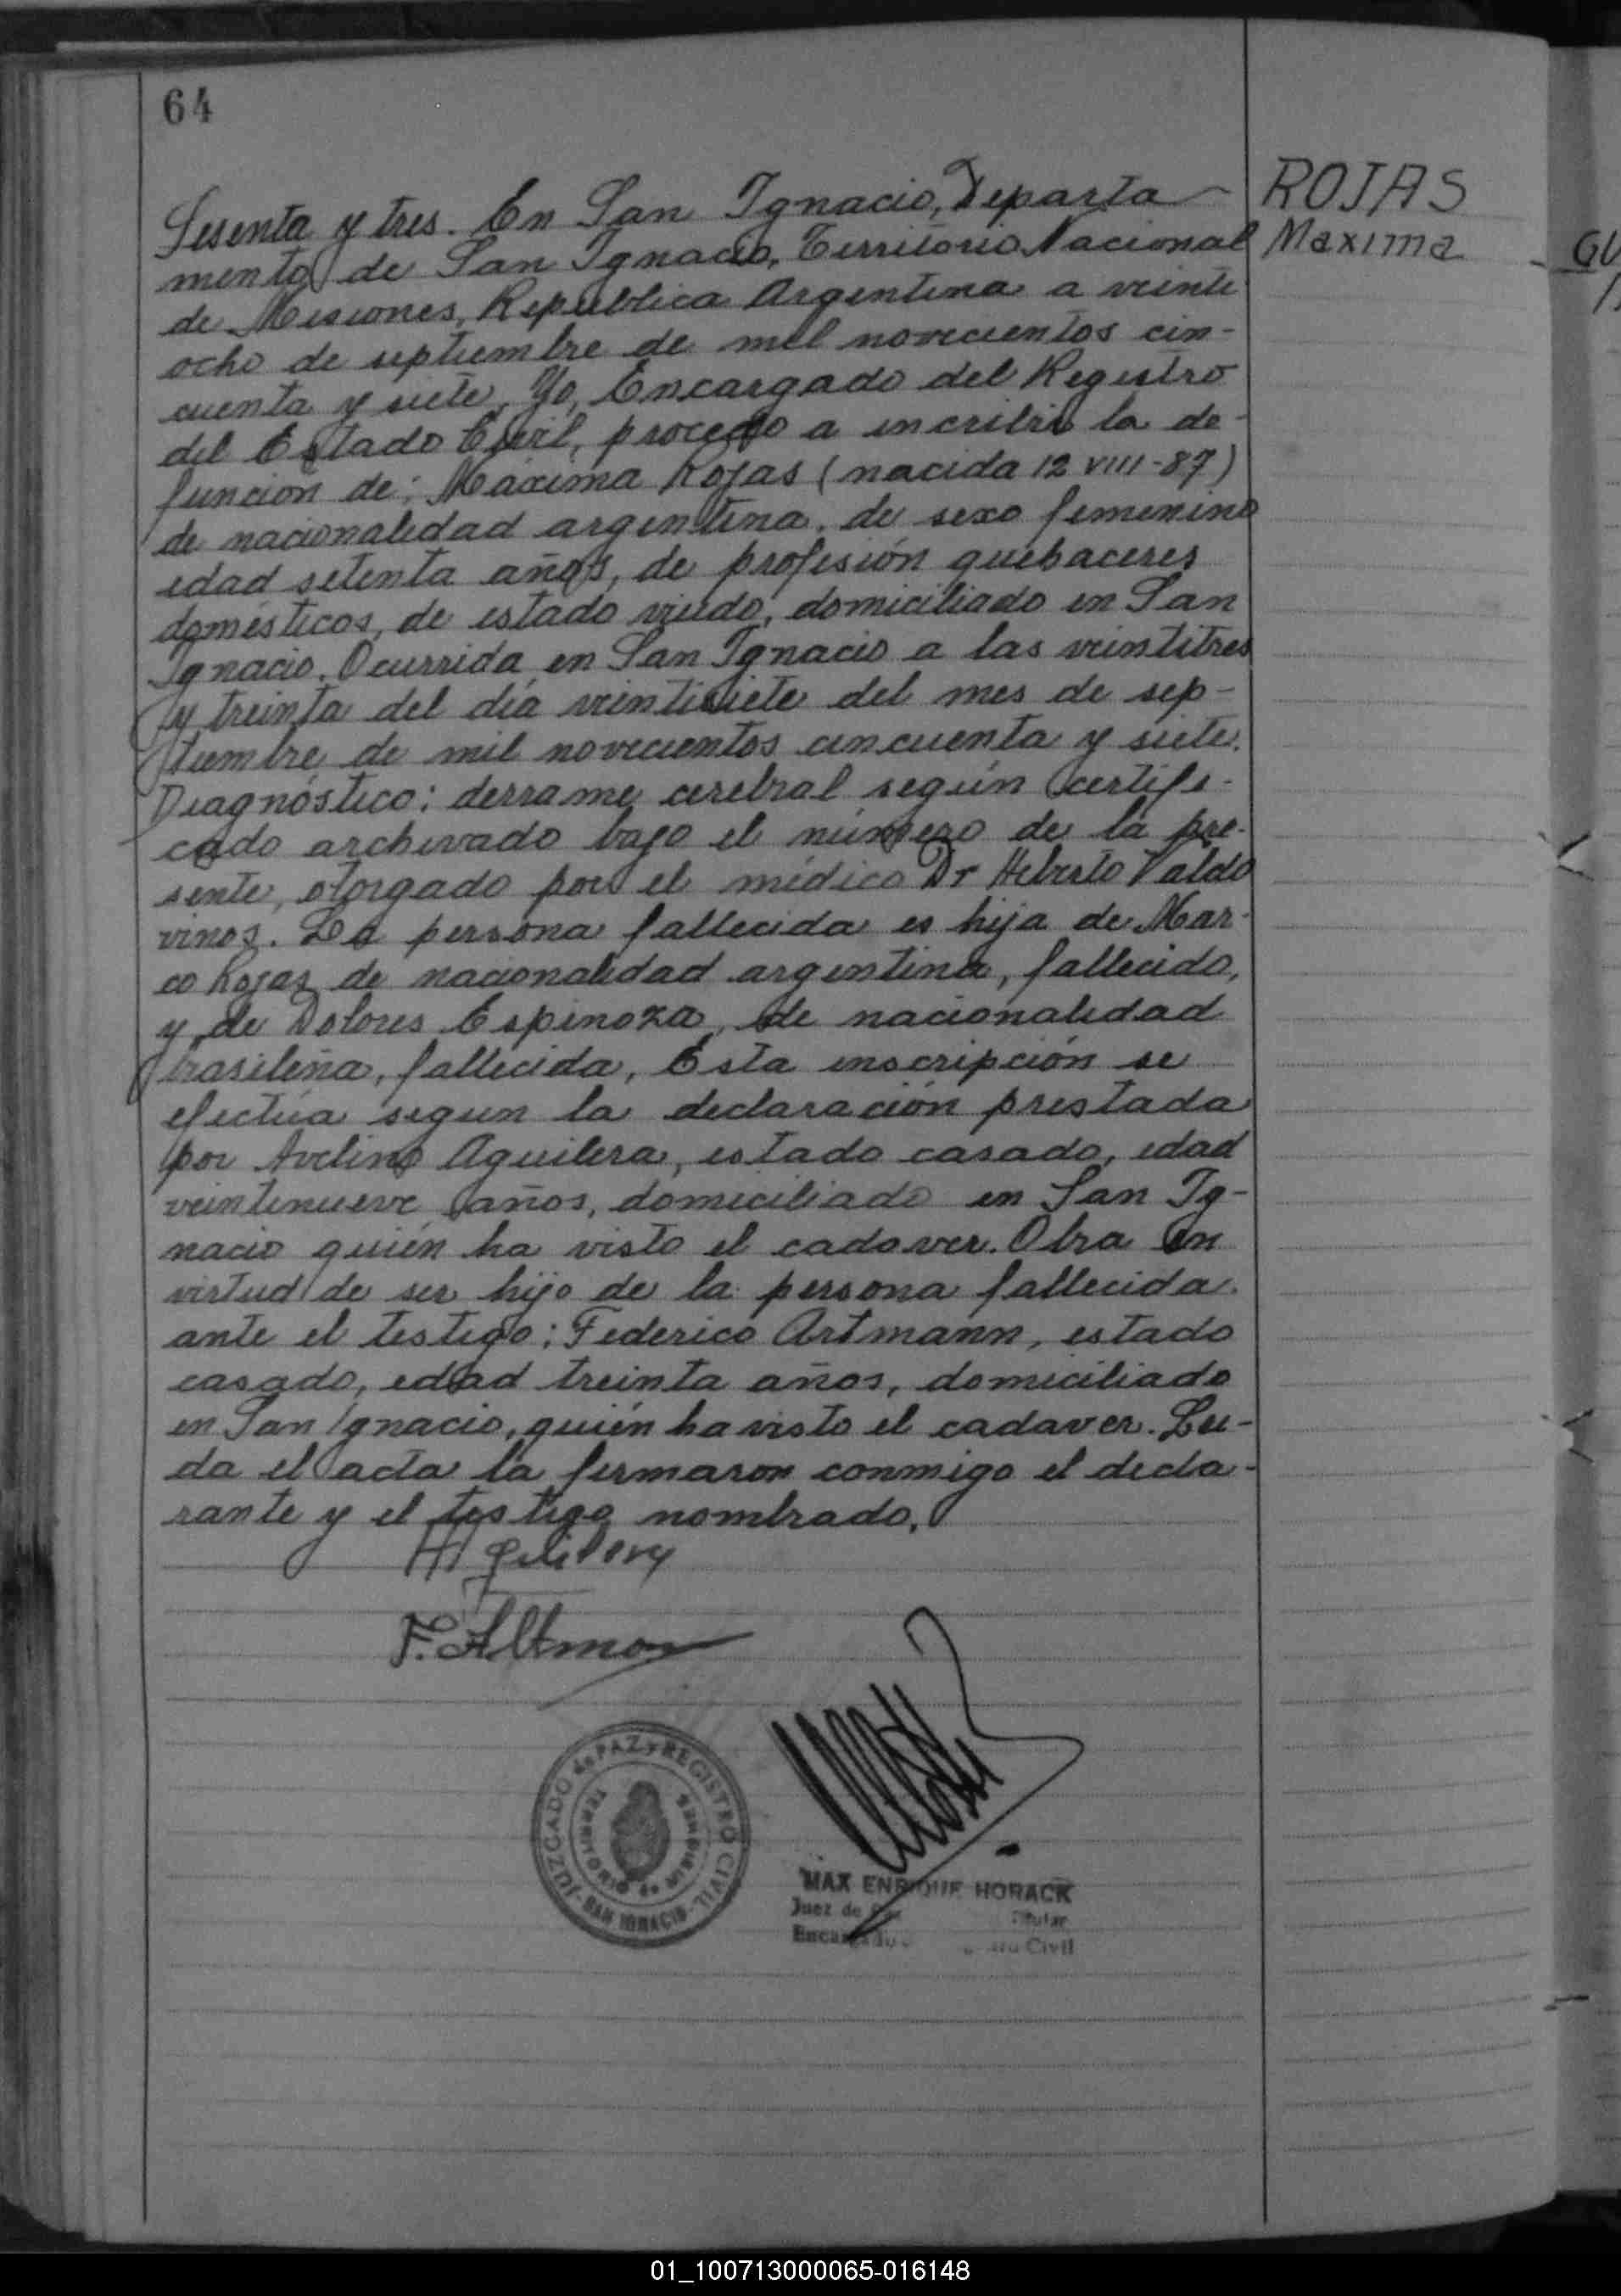 64
ROJAS
Maxima
Sesenta y tres. En San Ignacio, Departa
mento de San Ignacio, Territorio Nacional
de Misiones, Republica Argentina a veinti
ocho de septiembre de mil novecientos cin-
cuenta y siete, Yo, Encargado del Registro
del Estado Civil, procedo a incribir la de-
función de: Máxima Rojas (nacida 12 VIII-87)
de nacionalidad argentina, de sexo femenino
edad setenta años, de profesión quehaceres
domésticos, de estado viudo, domiciliado en San
Ignacio. Ocurrida en San Ignacio a las veintitres
y treinta del día veintisiete del mes de sep-
tiembre de mil novecientos cincuenta y siete.
Diagnóstico: derrame cerebral según certifi-
cado archivado bajo el número de la pre-
sente, otorgado por el médico Dr Heberto Valdo
vinos. La persona fallecida es hija de Mar-
co Rojas de nacionalidad argentina, fallecido,
y de Dolores Espinoza, de nacionalidad
brasileña, fallecida, Esta inscripción se
efectúa segun la declaración prestada
por Avelino Aguilera, estado casado, edad
veintinueve años, domiciliado en San Ig-
nacio quién ha visto el cadaver. Obra en
virtud de ser hijo de la persona fallecida.
ante el testigo: Federico Artmann, estado
casado, edad treinta años, domiciliado
en San Ignacio, quién ha visto el cadaver. Leí-
da el acta la firmaron conmigo el decla-
rante y el testigo nombrado.
F. Altman
JUZGADO de PAZ y REGISTRO CIVIL
TERRITORIO de MISIONES
-SAN IGNACIO-
MAX ENRIQUE HORACK
Juez de Titular
Civil
01_100713000065-016148